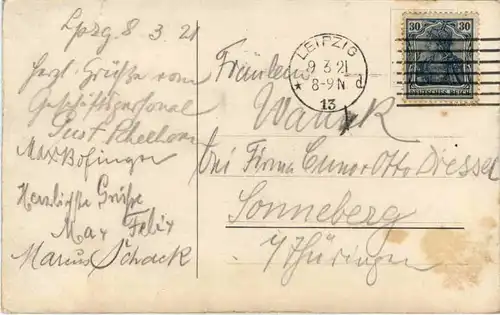 Lpzg 8 3. 21
herzl. Grüße vom
Geschäftspersonal
Max Bofinger
Herzlichste Grüße
Max Felix
Marcus Schack
LEIPZIG
9 3 21
8-9 N
d
13
30 30
DEUTSCHES REICH
Fräulein
bei Firma Cuno u Otto Dressel
Sonneberg
i/Thüringen